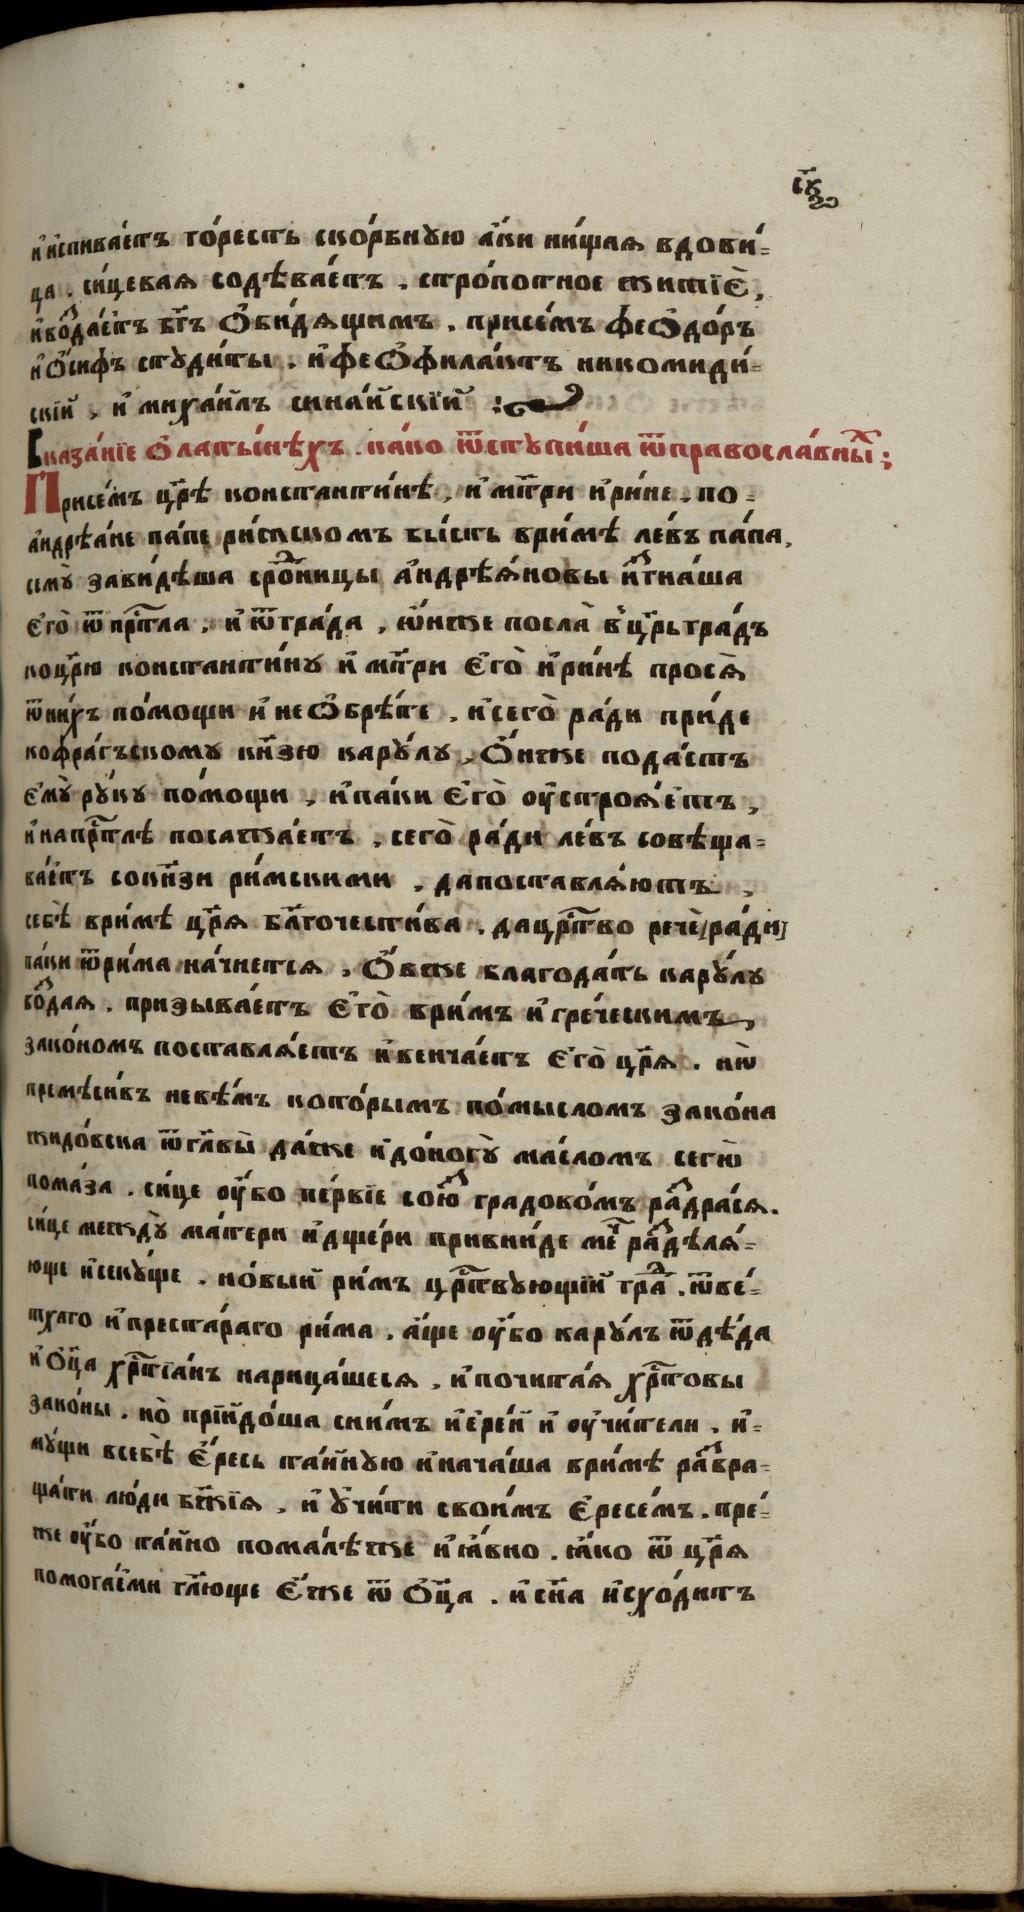 сѵ҃
20
и҆испива́етъ го́ресть ско́рбную а҆́ки ни́щая вдови́-
ца . си́цевая содѣва́етъ , стро́потное житїѐ ,
и҆вⷪ҇да́етъ бг҃ъ ѻ҆би́дящимъ . присе́мъ феѡдо́ръ
и҆ѻ҆́сифъ студи́ты . и҆ феѡфила́ктъ никомиди́-
скїй , и҆ миха́илъ сина́йскїй :
Сказа́нїе ѻ҆латы́нѣхъ . ка́ко ѿступи́ша ѿправосла́вныⷯ :
Присе́мъ цр҃ѣ константи́нѣ , и҆ мт҃ри и҆ри́не . по-
а҆ндрѣа́не па́пе ри́мскомъ бы́сть ври́мѣ ле́въ па́па ,
семꙋ̀ зави́дѣша срⷪ҇дницы а҆ндрѣя́новы и҆ⷥгна́ша
є҆го̀ ѿ прⷭ҇тла , и҆ ѿгра́да , ѡ҆́нже посла̀ в цр҃ьгра́дъ
коцр҃ю константи́ну и҆ мт҃ри є҆го̀ и҆ри́нѣ прося̀
ѿни́хъ по́мощи и҆ неѡбрѣ́те . и҆сего̀ ра́ди прі́де
кофра́гъскому кн҃зю кару́лу , ѻ҆́нже пода́стъ
є҆мꙋ̀ ру́ку по́мощи , и҆па́ки є҆го̀ оу҆строя́етъ ,
и҆напрⷭ҇тлѣ посажда́етъ . сего̀ ра́ди ле́въ совѣща-
ва́етъ сокн҃зи ри́мскими . дапоставля́ютъ ,
себѣ̀ ври́мѣ цр҃я бл҃гочести́ва . дацрⷭ҇тво речѐ ра́ди
па́ки ѿри́ма на́чнется . ѻ҆́вже благода́ть кару́лу
вⷪ҇здая . призыва́етъ є҆го̀ ври́мъ и҆ гре́ческимъ
зако́номъ поставля́етъ и҆венча́етъ є҆го̀ цр҃я . нѡ̀
премѣси́въ невѣ́мъ кото́рымъ по́мысломъ зако́на
жидо́вска ѿглавы̀ да́же и҆до́ногꙋ̀ ма́сломъ сего̀
пома́за . си́це оу҆́бо пе́рвїе сою́ⷥ градоко́мъ ра́ⷥдрася .
си́це междꙋ̀ ма́тери и҆дще́ри привни́де ме́чъ ра́ⷥдѣля́-
юще и҆секу́ще . но́вый ри́мъ црⷭ҇твующїй гра́ⷣ . ѿве́-
тхаго и҆преста́раго ри́ма . а҆́ще оу҆́бо кару́лъ ѿдѣ́да
и҆ ѻ҆ц҃а хрⷭ҇тїа́нъ нарица́шеся , и҆почита́я хрⷭ҇товы
зако́ны . но̀ прїйдо́ша сни́мъ и҆ере́й и҆ оу҆чи́тели . и҆-
му́щи всебѣ̀ є҆́ресь та́йную и҆нача́ша ври́мѣ ра́ⷥвра-
ща́ти лю́ди бж҃їя , и҆ у҆чи́ти свои́мъ є҆ресе́мъ . пре́-
же оу҆́бо та́йно помалѣ́же и҆ я҆́вно . я҆́ко ѿ цр҃я
помога́еми гл҃юще є҆́же ѿ ѻ҆ц҃а . и҆ сн҃а и҆схо́дитъ